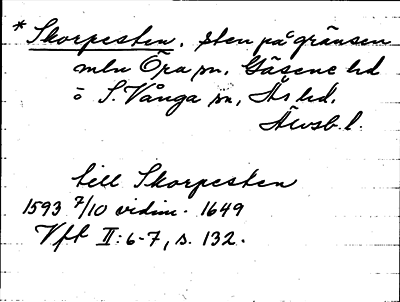 * Skorpesten, sten på gränsen
mln Öra sn, Gäsene hd
o S. Vånga sn, Ås hd,
Älvsb. l.
till Skorpesten
1593 7/10 vidim. 1649
Vfl II: 6-7, s. 132.